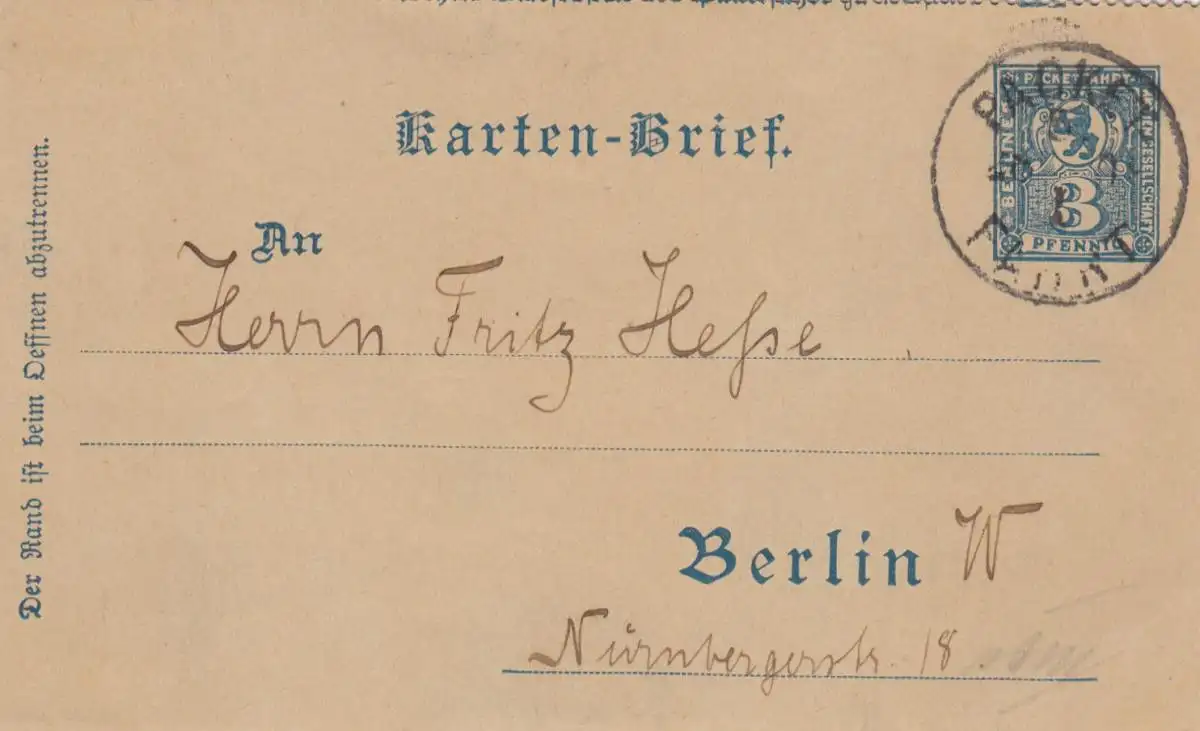 Karten-Brief.
PACKETFAHRT-
BERLINER
ACTIEN-GESELLSCHAFT
3
PFENNIG
PACKET
FAHRT
An
Herrn Fritz Hesse
Berlin W
Nürnbergerstr. 18
Der Rand ist beim Oeffnen abzutrennen.